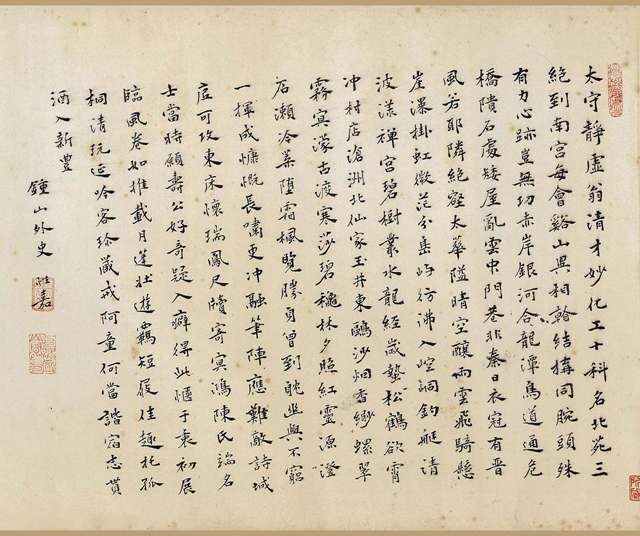 太守靜虛翁清才妙化工十科名北苑三
絕到南宮每會谿山興相幹結構同腕頭殊
有力心跡豈無功赤岸銀河合龍潭鳥道通危
橋隤石處矮屋亂雲中門巷非秦日衣冠有晉
風若耶隣絕壑太華隘晴空釀雨雲飛騎懸
崖瀑掛虹微茫分島嶼彷彿入崆峒釣艇清
波漾禪宮碧樹叢水龍經歲蟄松鶴欲霄
冲村店滄洲北仙家玉井東鷗沙烟杳緲螺翠
霧冥濛古渡寒莎碧穠林夕照紅靈源澄
石瀨冷葉墮霜楓覽勝身曾到眺遊興不窮
一揮成慷慨長嘯更冲融筆陣應難敵詩城
庶可攻東床懷瑞鳳尺牘寄冥鴻陳氏論名
士當時顧壽公好奇疑入癖得此愜于衷初展
臨風卷如推載月篷壯遊羈短屐佳趣托孤
桐清玩延吟客珍藏戒阿童何當諧宿志貰
酒入新豐
鍾山外史 嘉